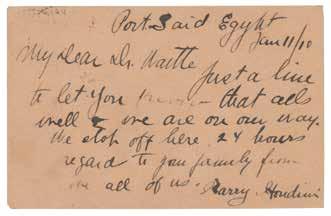 Port Said Egypt
Jan 11/10
My Dear Dr. Waitte
Just a line
to let you know – that alls
well & we are on our way.
We stop off here 24 hours
regard to you family from
all of us. Harry Houdini